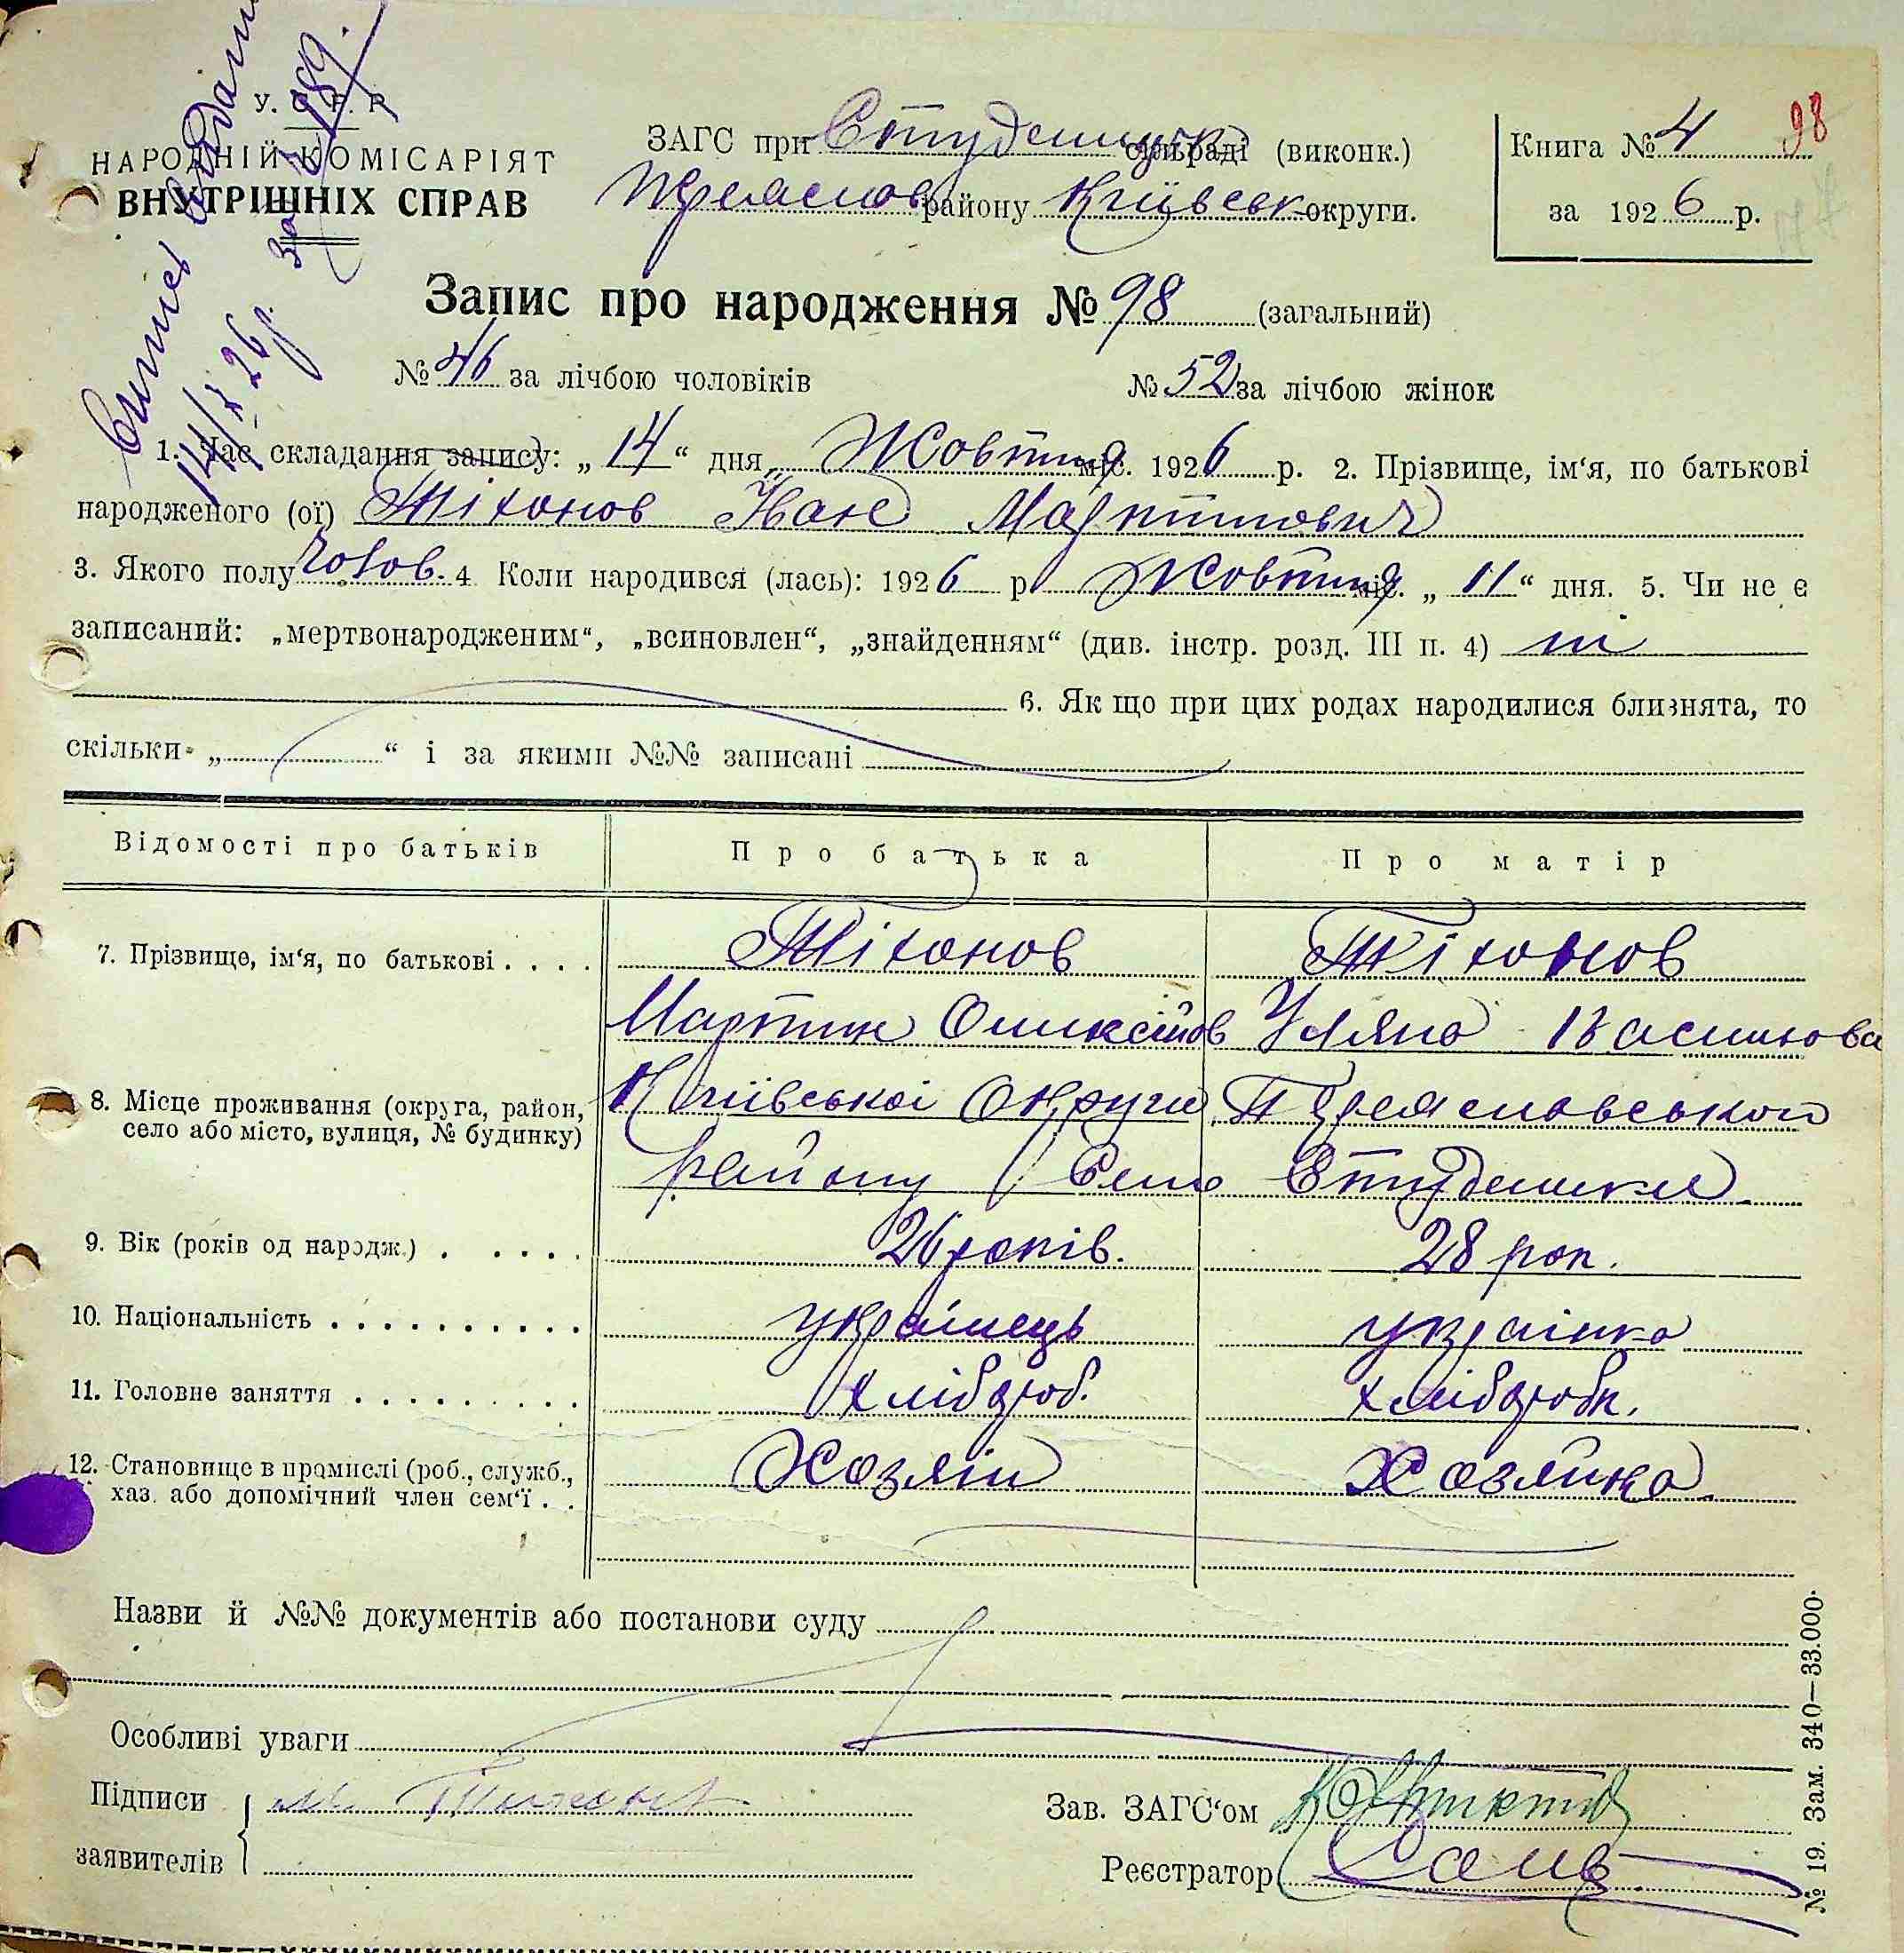 Випис видано
14/X 26 р. за № 189.
У. С. Р. Р.
НАРОДНІЙ КОМІСАРІЯТ
ВНУТРІШНІХ СПРАВ
ЗАГС при Студеницьк сільраді (виконк.)
Переяслов району Київськ округи.
Книга № 4 98
за 1926 р.
Запис про народження № 98 (загальний)
№ 46 за лічбою чоловіків № 52 за лічбою жінок
1. Час складання запису: „14“ дня Жовтня міс. 1926 р. 2. Прізвище, ім‘я, по батькові
народженого (ої) Тіхонов Іван Мартинович
3. Якого полу чолов. 4 Коли народився (лась): 1926 р Жовтня міс. „11“ дня. 5. Чи не є
записаний: „мертвонародженим“, „всиновлен“, „знайденням“ (див. інстр. розд. III п. 4) ні
6. Як що при цих родах народилися близнята, то
скільки „ “ і за якими №№ записані
Відомості про батьків Про батька Про матір
7. Прізвище, ім‘я, по батькові . . . . Тіхонов Тіхонов
Мартин Оликсійов Уляна Василова
8. Місце проживання (округа, район, Київської Округи Переясловського
село або місто, вулиця, № будинку) району Село Студеники
9. Вік (років од народж.) . . . . . 26 років. 28 рок.
10. Національність . . . . . . . . . . українець українка
11. Головне заняття . . . . . . . . . хлібороб. хліборобк.
12. Становище в промислі (роб., служб., Хозяін Хозяйка
хаз. або допомічний член сем‘ї . .
Назви й №№ документів або постанови суду
Особливі уваги
Підписи м. Тихонов
заявителів
Зав. ЗАГС‘ом
Реєстратор
№ 19. Зам. 340—33.000.